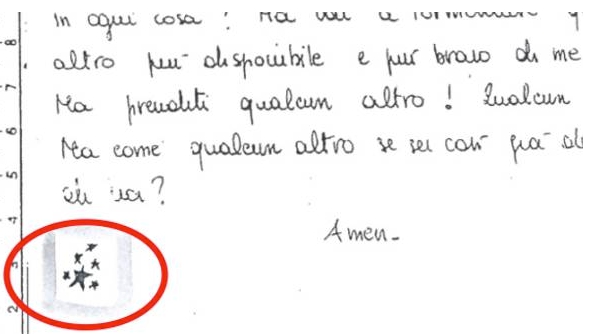 in ogni cosa ! Ma vai a tormentare
altro più disponibile e più bravo di me
Ma prenditi qualcun altro ! Qualcun
Ma come qualcun altro se sei così già
Amen-
8
7
6
5
4
3
2